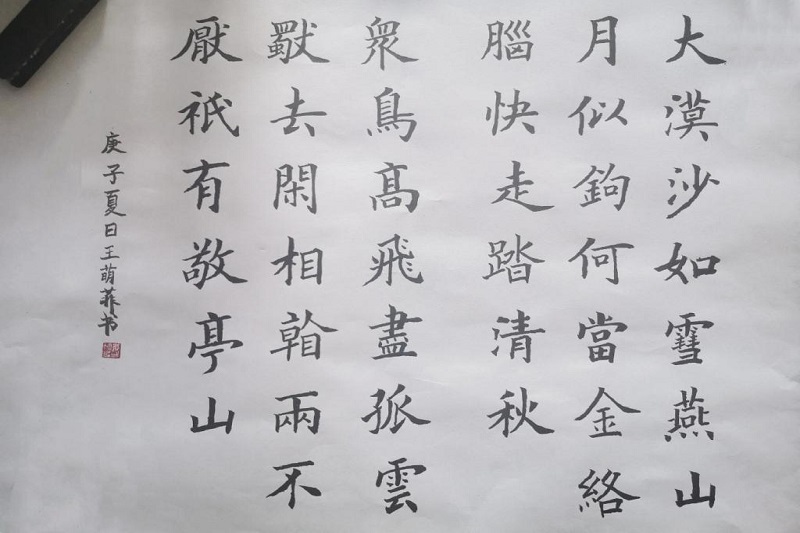 大漠沙如雪燕山
月似鉤何當金絡
腦快走踏清秋
衆鳥髙飛盡孤雲
獨去閑相看兩不
厭祇有敬亭山
庚子夏日王萌书